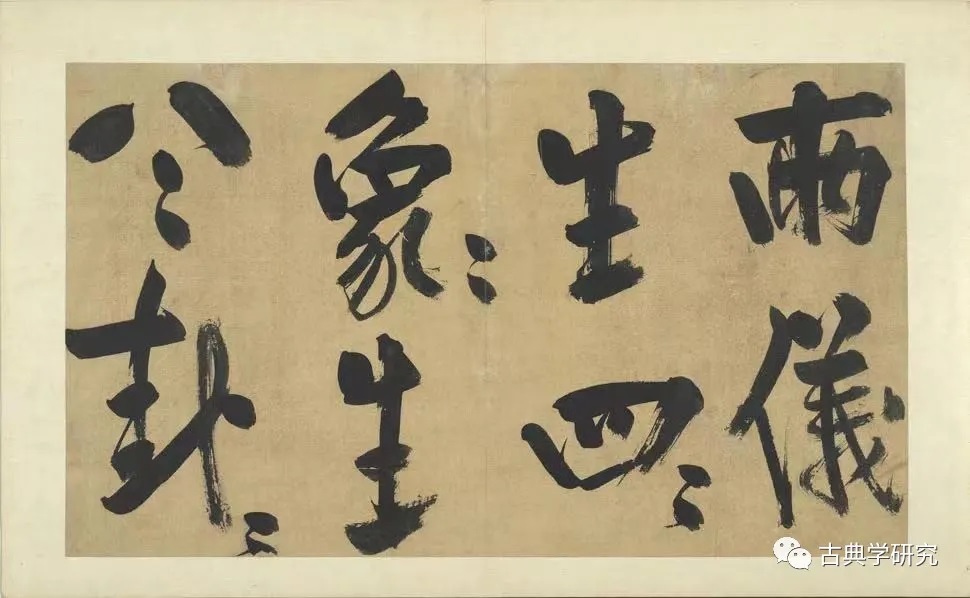 兩儀
生四〻
象〻生
八〻卦〻
古典学研究